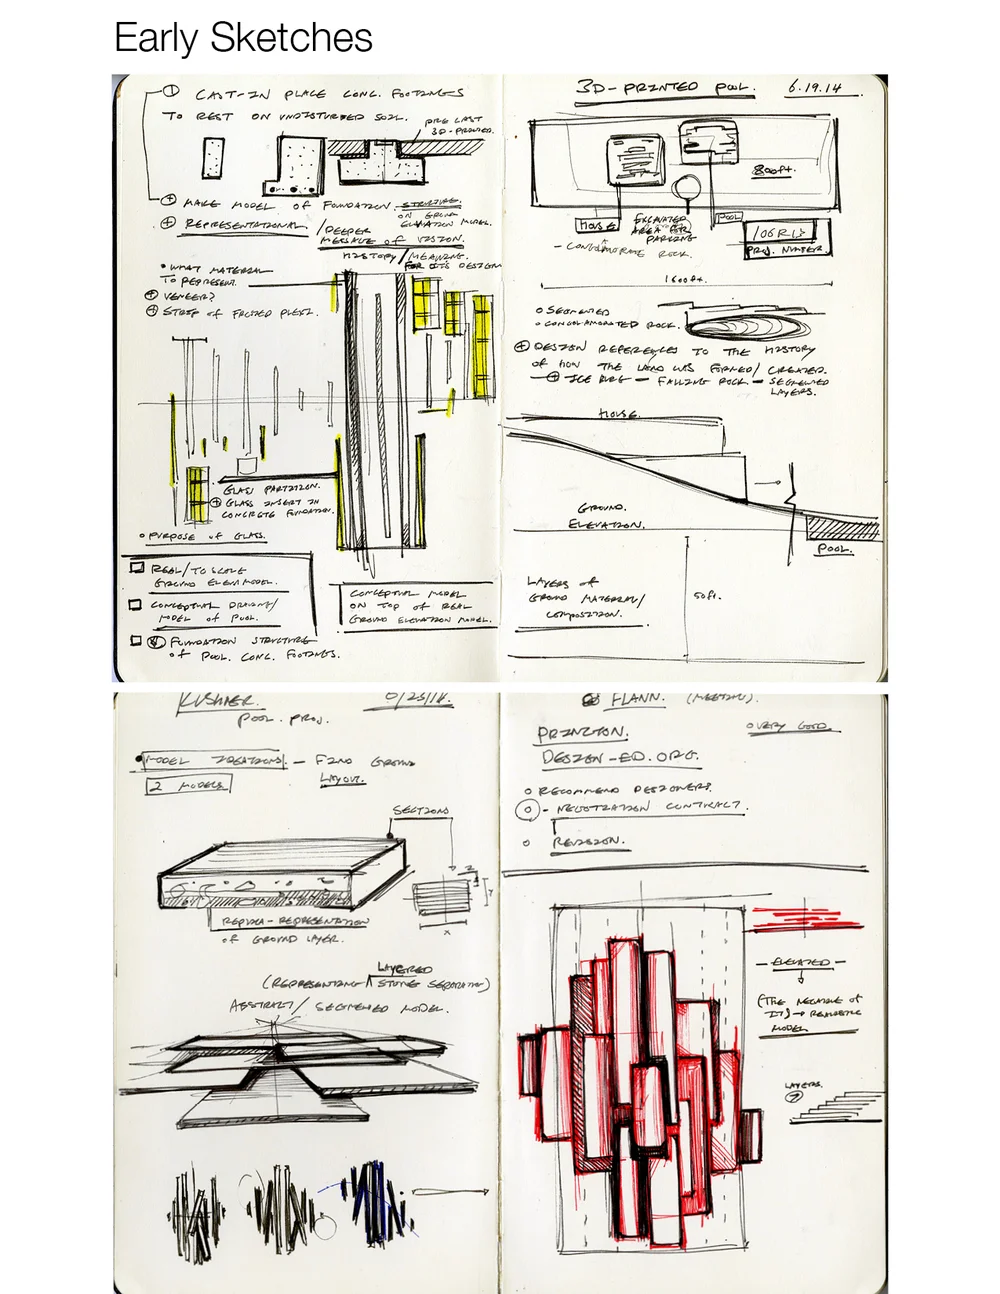 Early Sketches
① CAST-IN PLACE CONC. FOOTINGS
TO REST ON UNDISTURBED SOIL.
PRE CAST
3D-PRINTED.
MAKE MODEL OF FOUNDATION STRUCTURE
ON GROUND
ELEVATION MODEL.
REPRESENTATIONAL / DEEPER
MESSAGE OF VISION.
HISTORY / MEANING.
FOR ITS DESIGN
• WHAT MATERIAL
TO REPRESENT.
VENEER?
STRIP OF FROZED PLEXI.
GLASS PARTITION.
GLASS INSERT IN
CONCRETE FOUNDATION.
PURPOSE OF GLASS.
REAL/TO SCALE
GROUND ELEV. MODEL.
CONCEPTUAL DRAWING/
MODEL OF POOL.
FOUNDATION STRUCTURE
OF POOL. CONC. FOOTINGS.
CONCEPTUAL MODEL
ON TOP OF REAL
GROUND ELEVATION MODEL.
3D-PRINTED POOL. 6.19.14
800ft.
HOUSE
EXCAVATED
AREA FOR
PARKING
POOL
PROJ. NUMBER.
- CONGLOMORATE ROCK.
1600ft.
SEGMENTED
CONGLOMORATED ROCK.
DESIGN REFERENCES TO THE HISTORY
OF HOW THE LAND WAS FORMED/ CREATED.
ICE BURG - FALLING ROCK - SEGMENTED
LAYERS.
HOUSE.
GROUND.
ELEVATION.
POOL.
LAYERS OF
GROUND MATERIAL/
COMPOSITION.
50ft.
KUSHNER.
POOL. PROJ.
MODEL ITERATIONS. - FIND GROUND
LAYOUT.
2 MODELS
SECTIONS
X
REPRESENTATION
OF GROUND LAYER.
LAYERED
(REPRESENTING STONE SEPARATION)
ABSTRACT/ SEGMENTED MODEL.
FLANN. (MEETING).
PRINZTON.
OVERY GOOD.
DESIGN-ED.ORG.
RECOMMEND DESIGNERS?
- NEGOTIATION CONTRACT?
REVISION.
- ELEVATED -
(THE NEGATIVE OF
IT) → REALISTIC
MODEL
LAYERS.